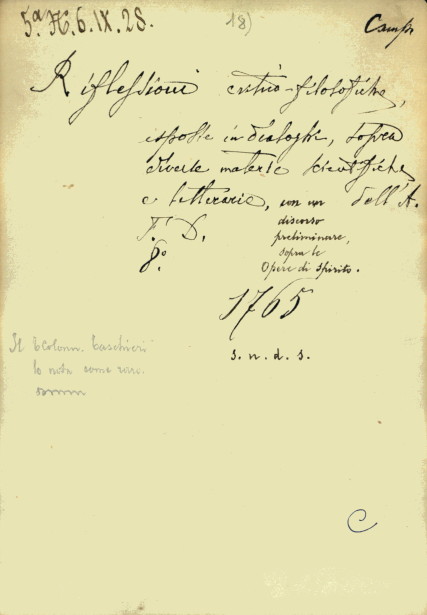 5ª H. 6. IX. 28.
18)
Riflessioni critico-filosofiche,
esposte in dialoghi, sopra
diverse materie scientifiche,
e letterarie, con un dell'A.
F. D. discorso
preliminare,
8.° sopra le
Opere di spirito.
1765
s. n. d. s.
Il
lo nota come raro.
C